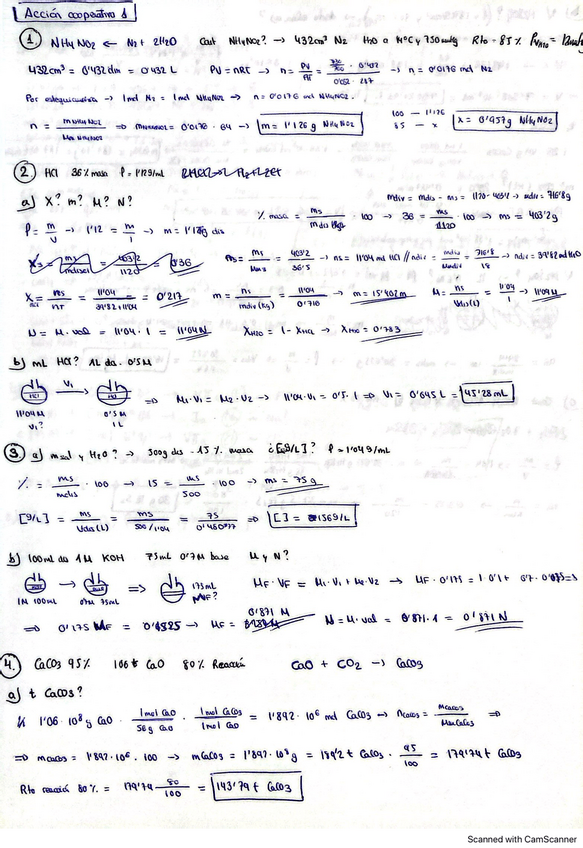 Acción cooperativa 1
1. NH4NO2 ← N2 + 2H2O Cant NH4NO2? → 432cm³ N2 H2O a 14ºC y 750mmHg Rto = 85%
432cm³ = 0'432 dm³ = 0'432 L PV = nRT → n = PV/RT = → n = 0'0176 mol N2
Por estequiometría → 1mol N2 = 1mol NH4NO2 → n = 0'0176 mol NH4NO2.
n = mNH4NO2 / Mm NH4NO2 ⇒ mNH4NO2 = 0'0176 · 64 → m = 1'126g NH4NO2
100 — 1'126
85 — x
x = 0'957g NH4NO2
2 HCl 36% masa ρ = 1'12g/mL
a) X? m? M? N?
mdiv = mdis - ms = 1120 - 403'2 → mdiv = 716'8g
ρ = m/V → 1'12 = m/1 → m = 1'12kg dis
% masa = ms/mdis · 100 → 36 = ms/1120 · 100 → ms = 403'2g
X = ms/mdisol = 403'2/1120 = 0'36
ns = ms/Mms = 403'2/36'5 → ns = 11'04 mol HCl // ndiv = mdiv/Mmdiv = 716'8/18 → ndiv = 39'82 mol H2O
XHCl = ns/nT = 11'04/39'82+11'04 = 0'217
m = ns/mdiv(kg) = 11'04/0'716 → m = 15'402m
M = ns/Vdis(L) = 11'04/1 → 11'04M
N = M · val = 11'04 · 1 = 11'04N
XH2O = 1 - XHCl → XH2O = 0'783
b) mL HCl? 1L dis. 0'5M
HCl V1 → HCl ⇒ M1·V1 = M2·V2 → 11'04·V1 = 0'5·1 ⇒ V1 = 0'045 L = 45'28mL
11'04M 0'5M
V1? 1L
3 a) msal y H2O? → 500g dis - 15% masa ¿[g/L]? ρ = 1'04g/mL
% = ms/mdis · 100 → 15 = ms/500 · 100 → ms = 75g
[g/L] = ms/Vdis(L) = ms/500/1'04 = 75/0'480 ⇒ [ ] = 156g/L
b) 100ml dis 1M KOH 75mL 0'7M base M y N?
→ ⇒ 175mL
MF?
1M 100ml 0'7M 75mL
MF · VF = M1·V1 + M2·V2 → MF · 0'175 = 1·0'1 + 0'7·0'075 ⇒
⇒ 0'175 MF = 0'1525 → MF = 0'871 M
N = M · val = 0'871·1 = 0'871 N
4. CaCO3 95% 106t CaO 80% Reacción CaO + CO2 → CaCO3
a) t CaCO3?
1'06·10⁸g CaO · 1mol CaO/56g CaO · 1mol CaCO3/1mol CaO = 1'892·10⁶ mol CaCO3 → nCaCO3 = mCaCO3/MmCaCO3 ⇒
⇒ mCaCO3 = 1'892·10⁶ · 100 → mCaCO3 = 1'892·10⁸g = 189'2 t CaCO3 · 95/100 = 179'74t CaCO3
Rto reacción 80% = 179'74 80/100 = 143'79 t CaCO3
Scanned with CamScanner